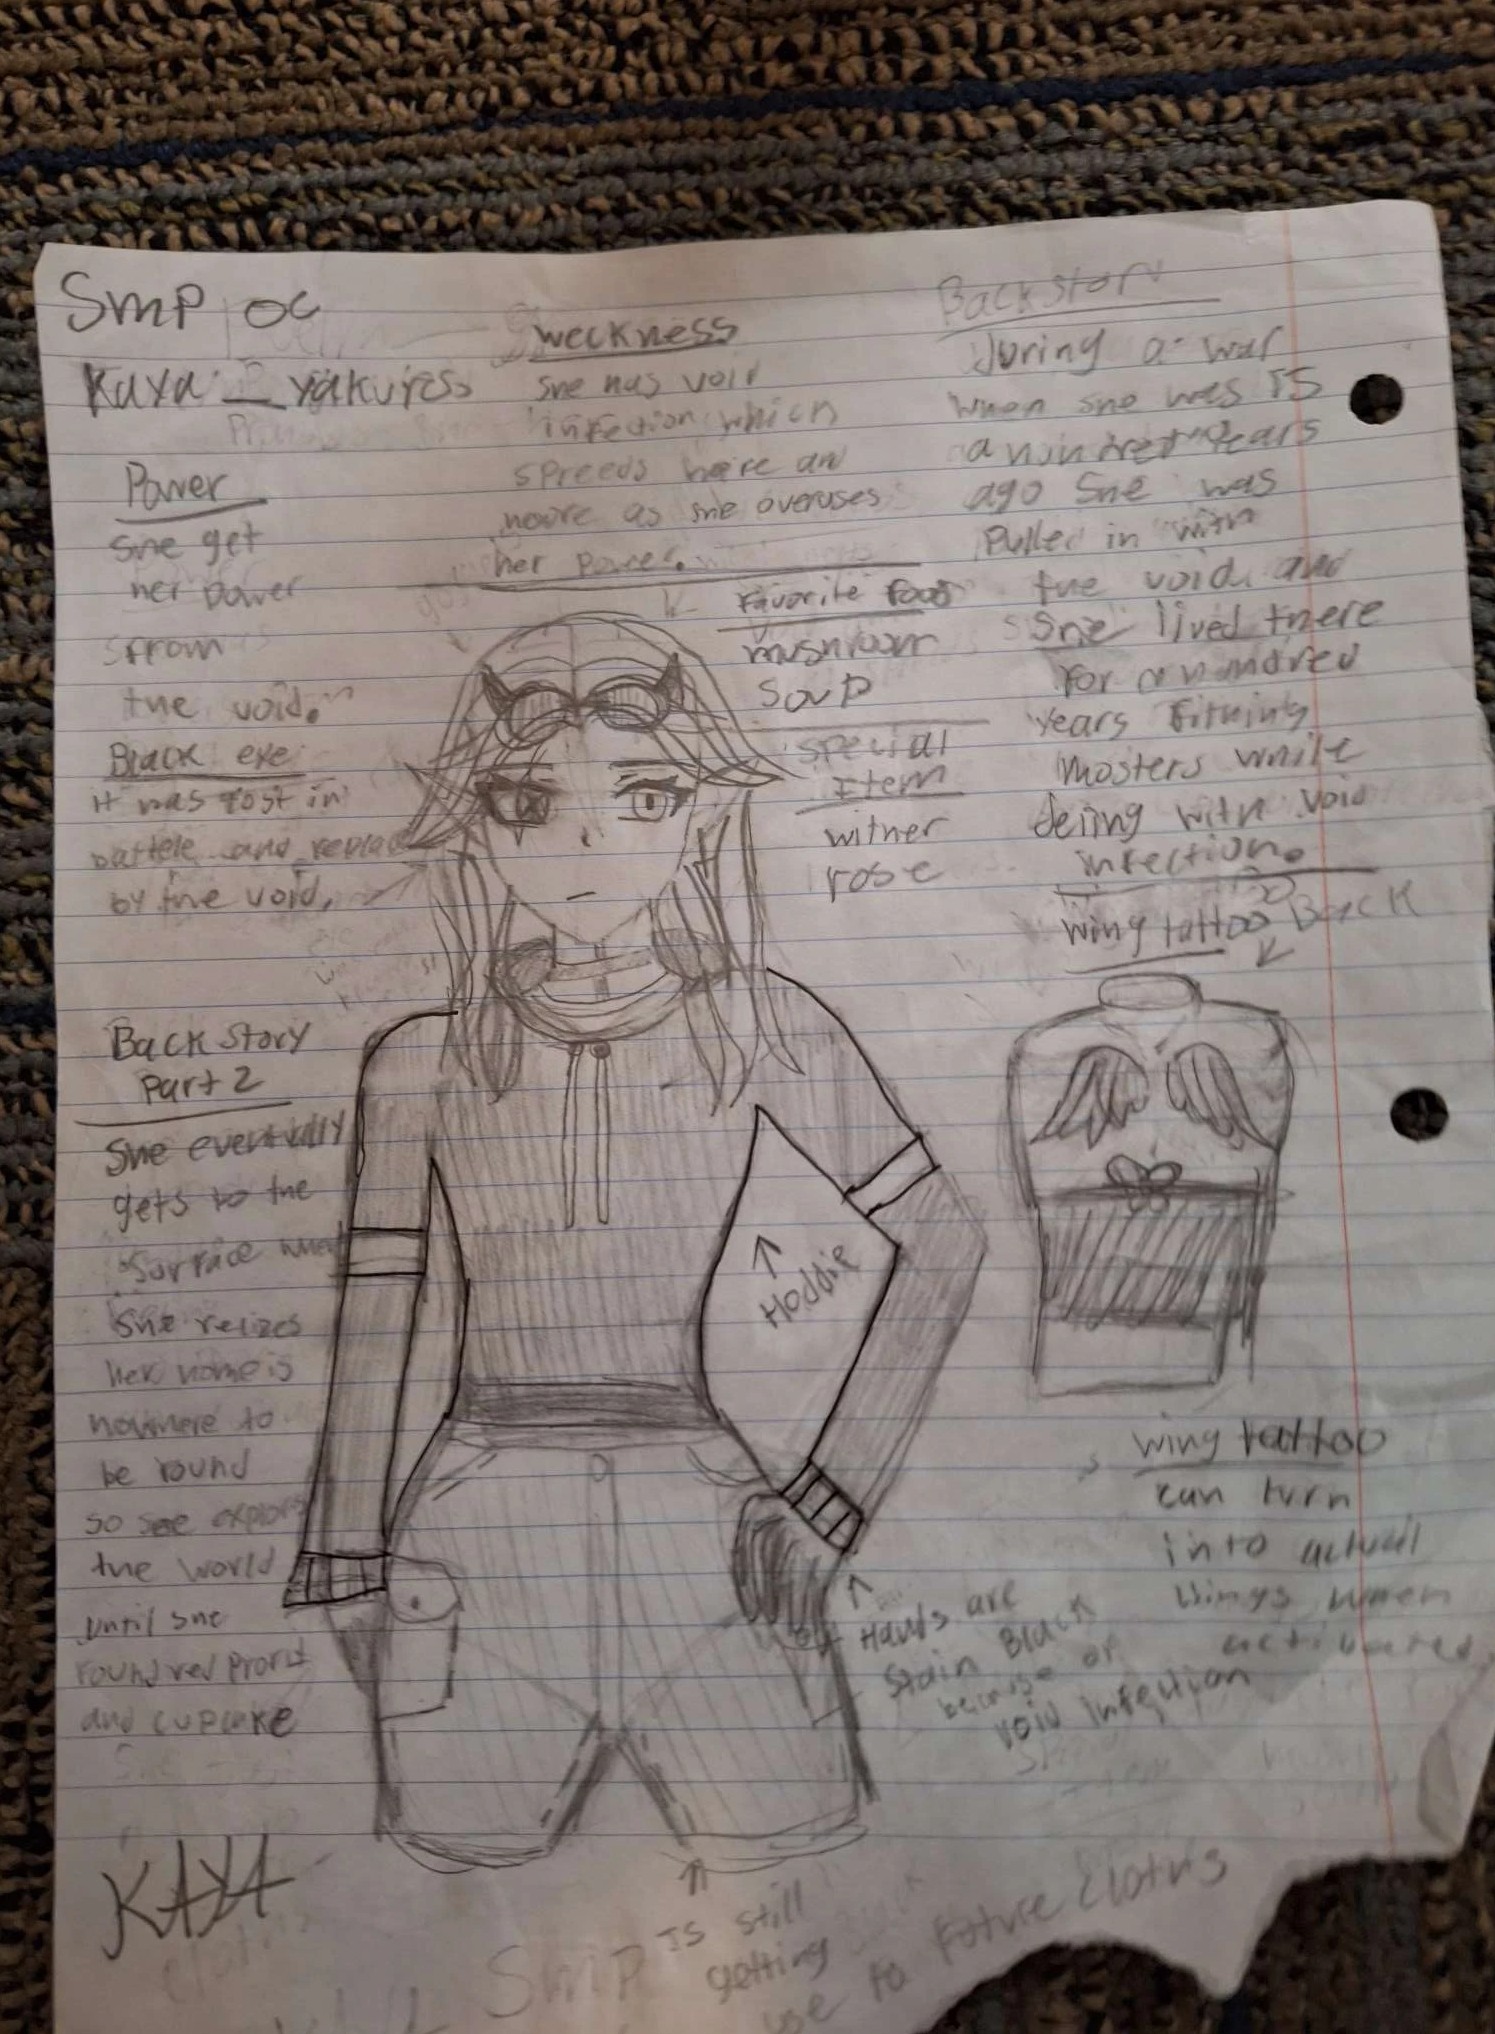 Smp oc
Kaya
Power
She get
her power
from
the void.
Black eye
it was lost in
battele and replac
by the void.
weckness
She has void
infection which
spreeds more an
more as she overuses
her power.
Favorite Food
mushroom
Soup
Special
Item
wither
rose
Backstory
During a war
when she was 15
a hundred years
ago She was
Pulled in with
the void and
She lived there
for a hundred
years fithing
Mosters while
deiing with void
infection.
wing tattoo Back
Back Story
Part 2
She eventully
gets to the
Surface when
She relizes
her home is
nowhere to
be found
so she explor
the world
until she
found red
and cupcake
Hoddie
wing tattoo
can turn
into actual
wings when
activated
Hands are
Stain Black
because of
void infection
KAYA
Smp
Is still
getting
use to future cloths